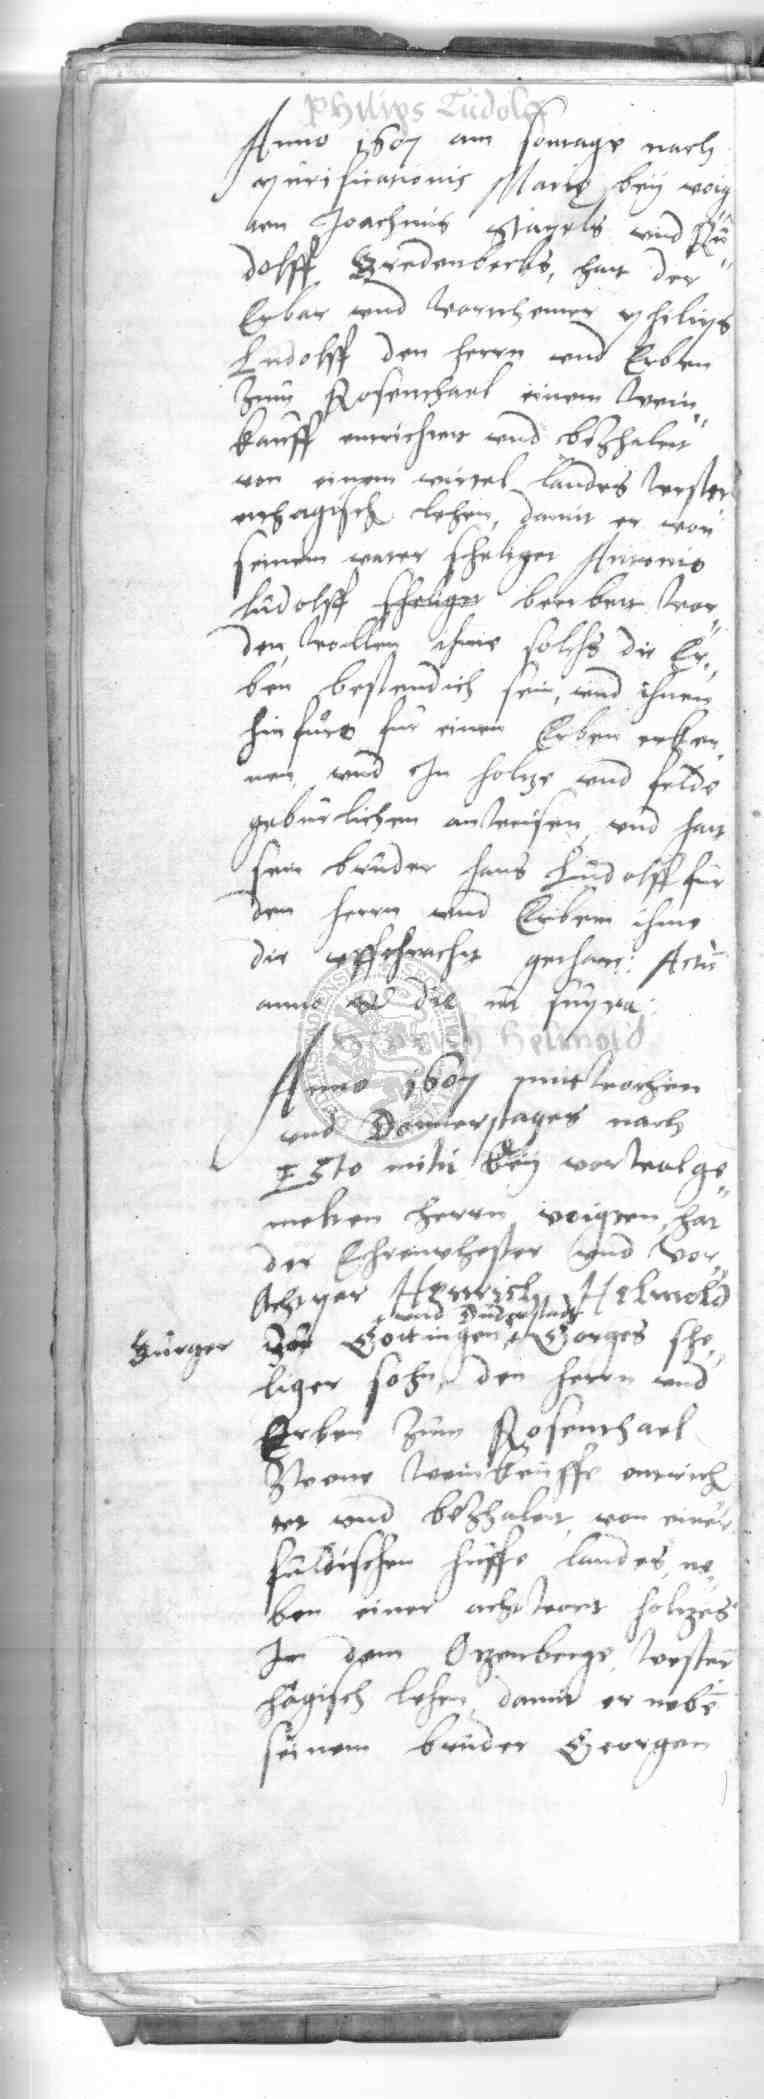 Philips Ludolff
Anno 1607 am sontage nach
purificationis Mariæ bey voig
ten Joachims Nagels und Ru
dolff Bredenbecks, hatt der
Erbar und vornhemer philips
Ludolff den herrn und Erben
zum Rosenthael einem wein
kauff entrichtet und bezhalett
von einem virtel landes wester
enhagisch lehen, damit er von
seinem vater scheliger Antonio
ludolff scheliger beerbett wor
den, wollen ihme solchs die Er
ben bestendich sein, und ihnen
hinfuro fur einen Erben erken
nen, und In holtze und felde
geburlichem anweisen, und hatt
sein bruder hans Ludolff fur
den herrn und Erben ihme
die uffthracht gethan: Actu
anno & die ut supra:
Henrich Helmold
Anno 1607 mittwochen
und Donnerstages nach
Esto mihi bey vorwolge
melten herrn voigten, hat
der Ehrenvhester und vor
Achtper Henrich Helmold
und Duderstadt
Burger zu Gottingen Gorges she
liger sohn, den herrn und
Erben zum Rosenthael
zwene weinkeuffe entrich
tet und bezhalett, von einer
fuldischen huffe landes, ne
ben einer achtwort holtzes
In dem Otzenberge, wester
hagisch lehen, damit er nebe
seinem bruder Georgen